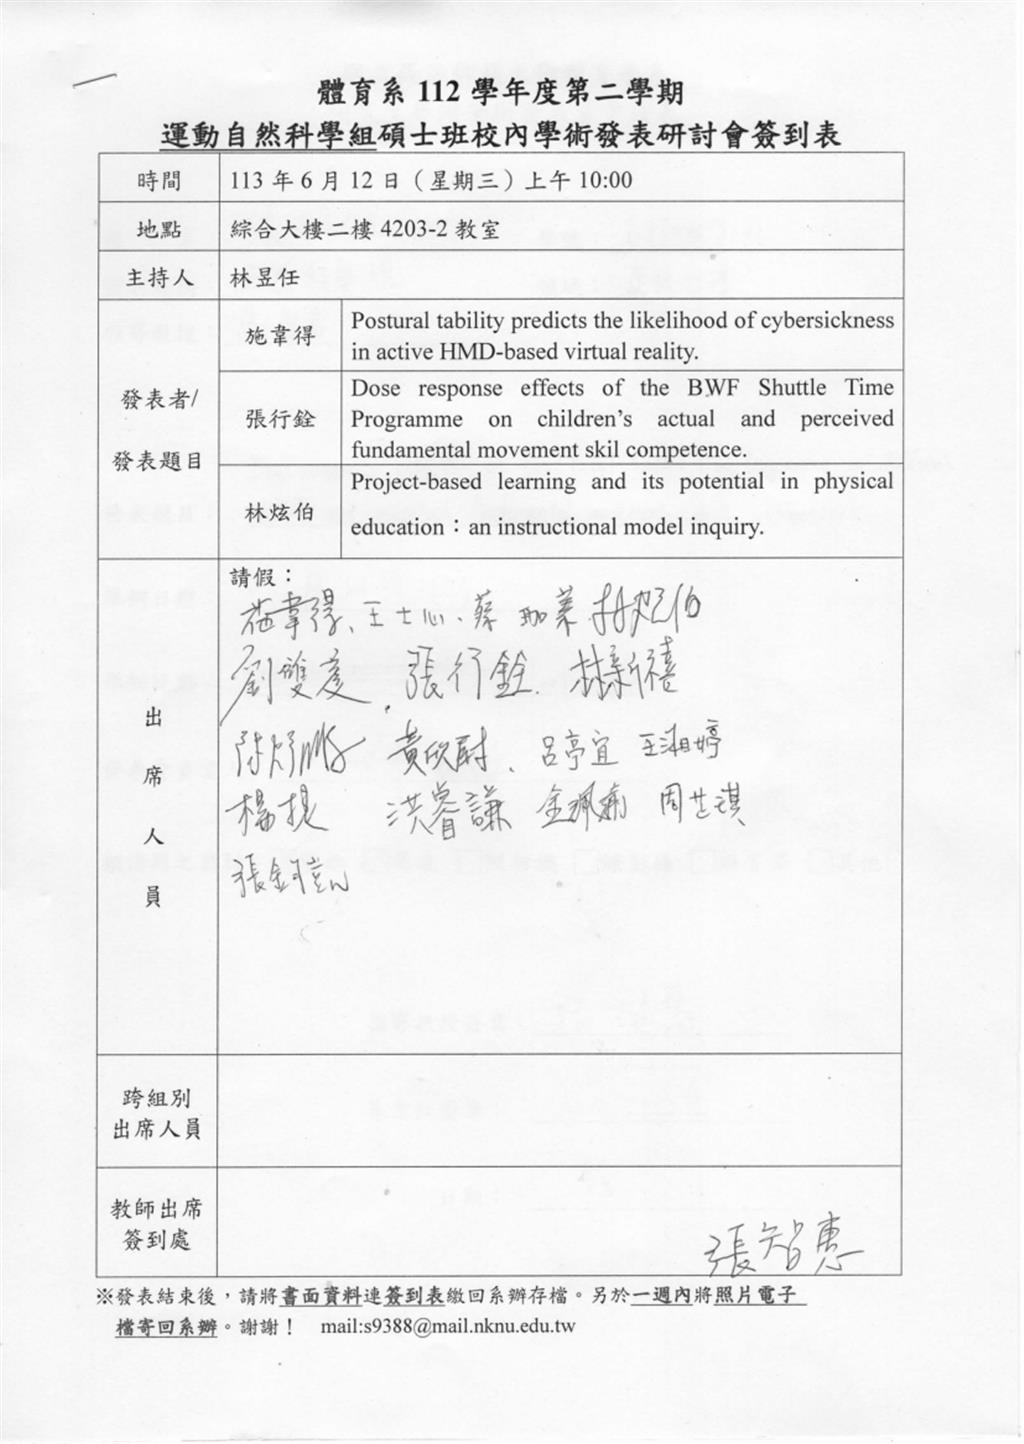 體育系 112 學年度第二學期
運動自然科學組碩士班校內學術發表研討會簽到表
時間 113 年 6 月 12 日（星期三）上午 10:00
地點 綜合大樓二樓 4203-2 教室
主持人 林昱任
發表者/
發表題目
施韋得 Postural tability predicts the likelihood of cybersickness
in active HMD-based virtual reality.
張行銓 Dose response effects of the BWF Shuttle Time
Programme on children's actual and perceived
fundamental movement skil competence.
林炫伯 Project-based learning and its potential in physical
education：an instructional model inquiry.
出席人員
請假：
施韋得、王士心、蔡珈葇 林炫伯
劉雙慶、張行銓 林新禧
黃欣尉、呂亭宜 王湘婷
楊提 洪睿謙 金珮 周芷琪
張釗
跨組別
出席人員
教師出席
簽到處
張智惠
※發表結束後，請將書面資料連簽到表繳回系辦存檔。另於一週內將照片電子
檔寄回系辦。謝謝！ mail:s9388@mail.nknu.edu.tw